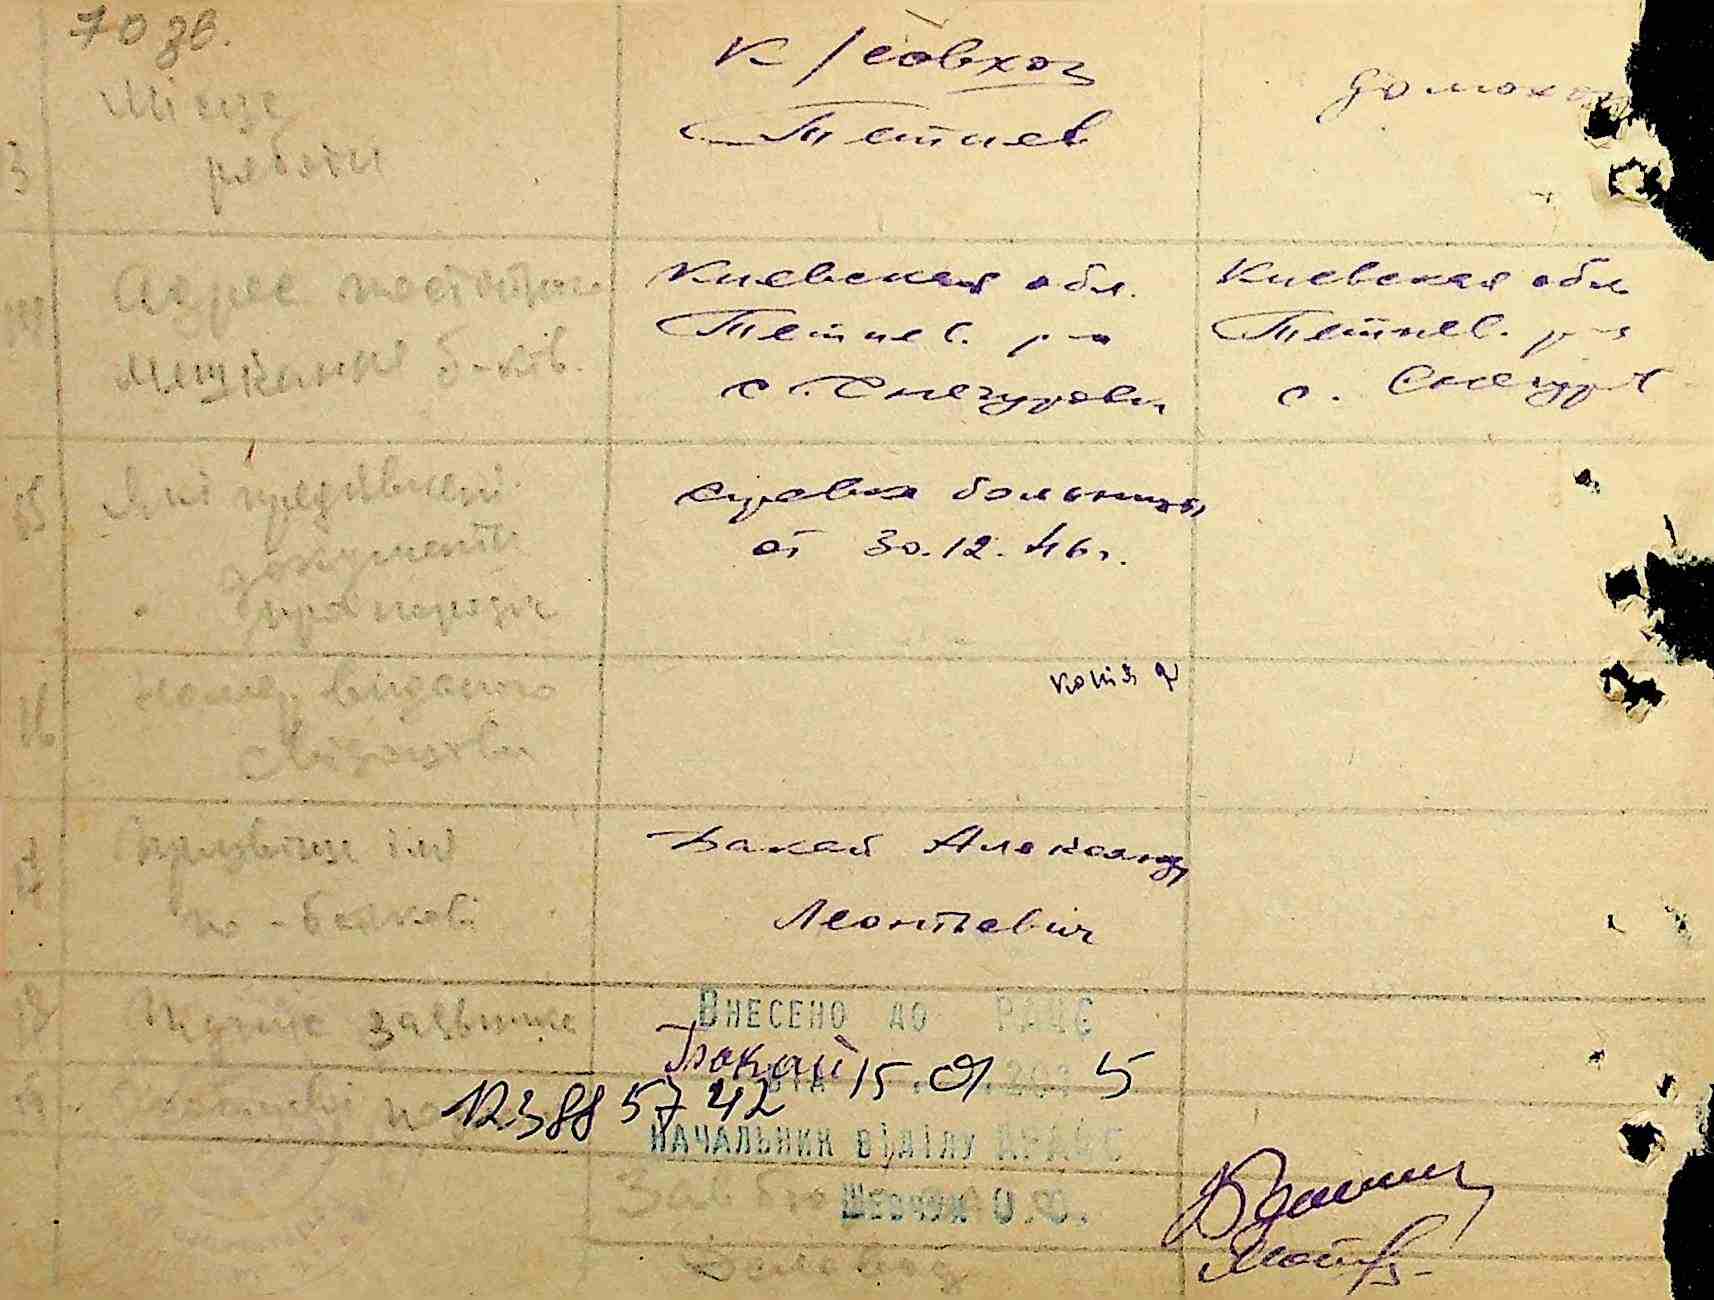 70 зв.
Місце
роботи
к/совхоз
Тетиев
домохоз
Адрес постоян
мешкання б-ків.
Киевская обл.
Тетиев. р-н
с. Снегуровки
Киевская обл
Тетиев. р-н
с. Снегур
15
Які предявлені
документи
справка больницы
от 30.12.46г.
16
Номер виданого
свідоцтва
копія
17
прізвище імя
по-батькові
Бакай Александр
Леонтьевич
18
Підпис заявника
Бакай
19
ВНЕСЕНО ДО РАЦС
15 01 201 5
12388 57 42
НАЧАЛЬНИК ВІДІЛУ ДРАЦС
Зав бю
ШЕВЧУК О.О.
Діловод